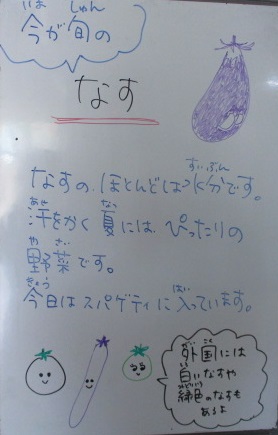 いま しゅん
今が旬の
なす
すいぶん
なすの、ほとんどは水分です。
あせ なつ
汗をかく夏には、ぴったりの
や さい
野菜です。
きょう はい
今日はスパゲティに入っています。
がい こく
外国には
しろ
白いなすや
みどりいろ
緑色のなすも
あるよ